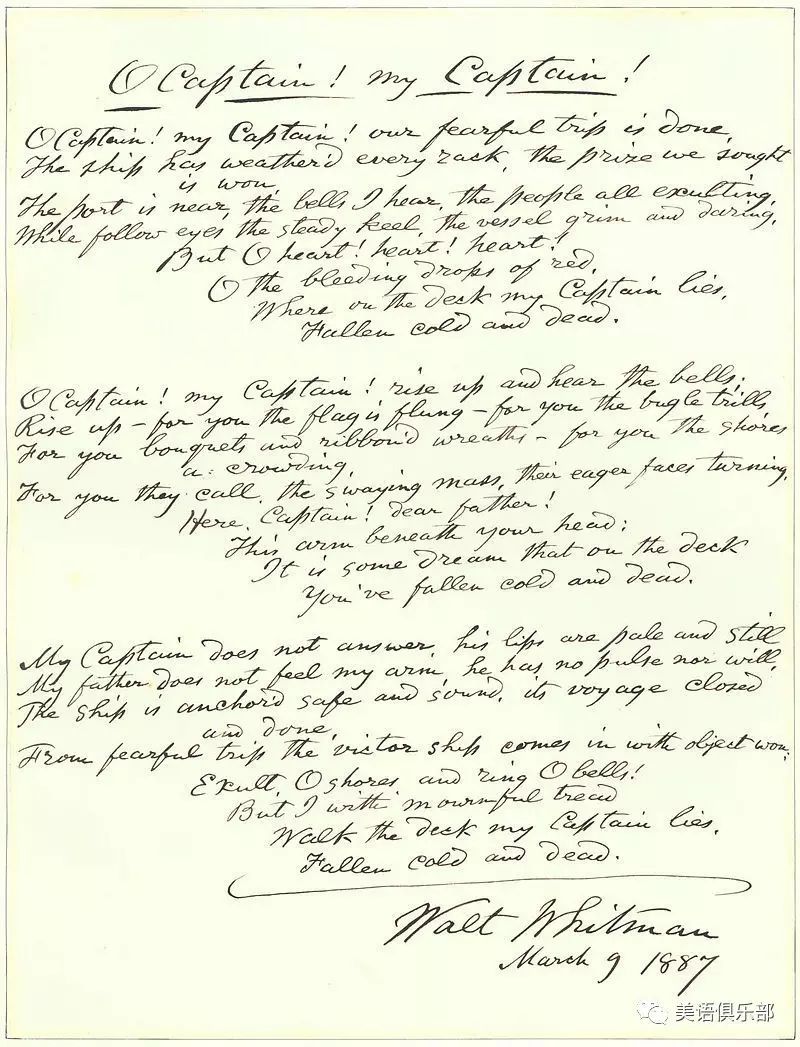 O Captain! my Captain!
O Captain! my Captain! our fearful trip is done,
The ship has weather'd every rack, the prize we sought
is won,
The port is near, the bells I hear, the people all exulting,
While follow eyes the steady keel, the vessel grim and daring,
But O heart! heart! heart!
O the bleeding drops of red,
Where on the deck my Captain lies,
Fallen cold and dead.
O Captain! my Captain! rise up and hear the bells;
Rise up – for you the flag is flung – for you the bugle trills,
For you bouquets and ribbon'd wreaths – for you the shores
a-crowding,
For you they call, the swaying mass, their eager faces turning,
Here, Captain! dear father!
This arm beneath your head;
It is some dream that on the deck
You've fallen cold and dead.
My Captain does not answer, his lips are pale and still
My father does not feel my arm, he has no pulse nor will,
The ship is anchor'd safe and sound, its voyage closed
and done,
From fearful trip the victor ship comes in with object won;
Exult, O shores and ring O bells!
But I with mournful tread
Walk the deck my Captain lies,
Fallen cold and dead.
Walt Whitman
March 9 1887
美语俱乐部